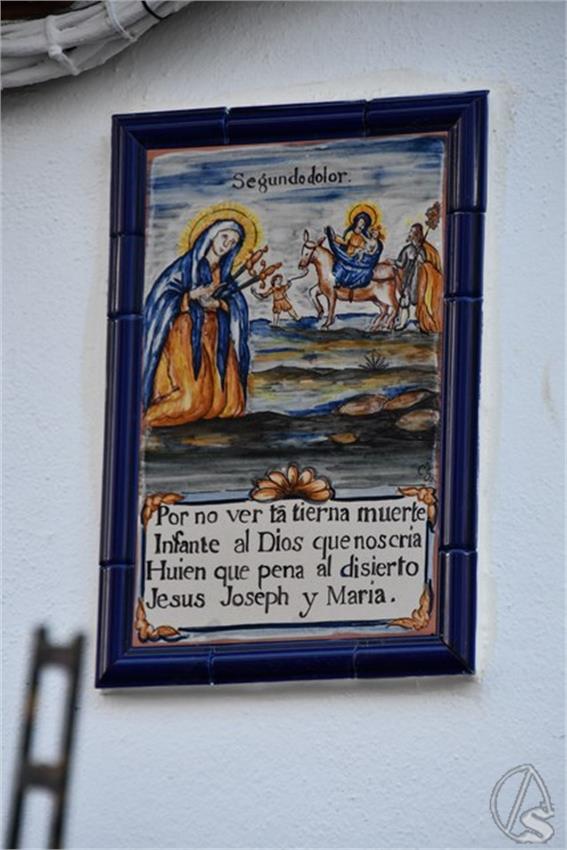 Segundo dolor.
Por no ver tã tierna muerte
Infante al Dios que nos cria
Huien que pena al disierto
Jesus Joseph y Maria.